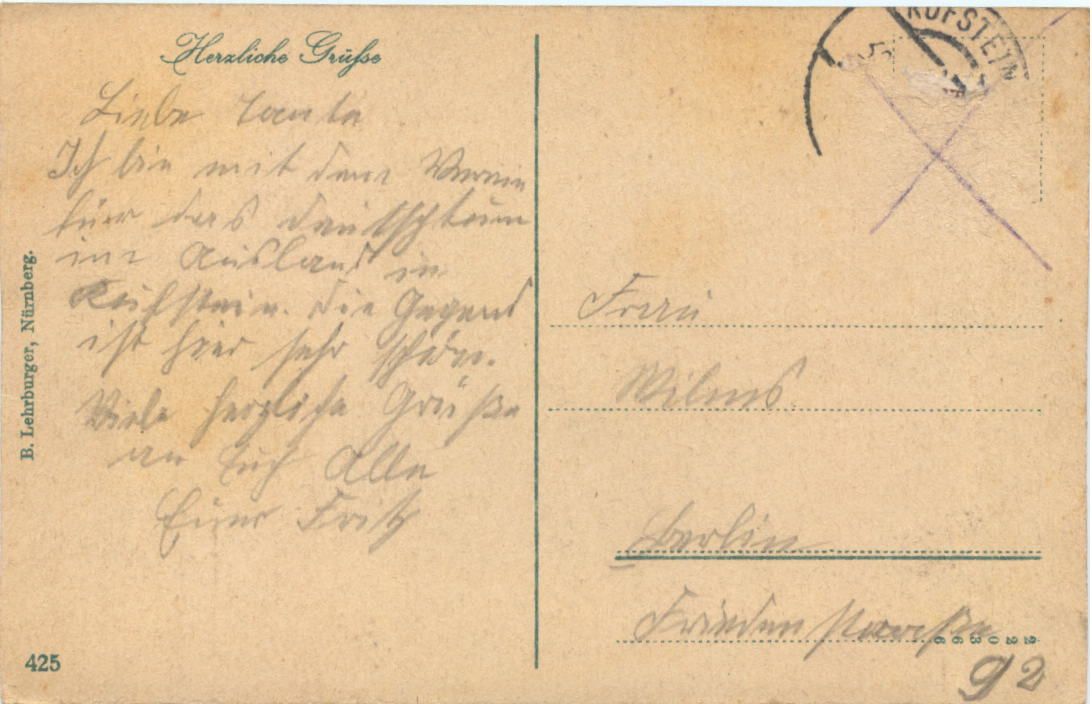 Herzliche Grüße
Liebe Tante
Ich bin mit dem Verein
für das Deutschtum
im Ausland in
Kufstein. Die Gegend
ist hier sehr schön.
Viele herzliche Grüße
an Euch Alle
Euer Fritz
B. Lehrburger, Nürnberg.
425
KUFSTEIN
Frau
Wilms
Berlin
Friedenstraße
92
22036 6